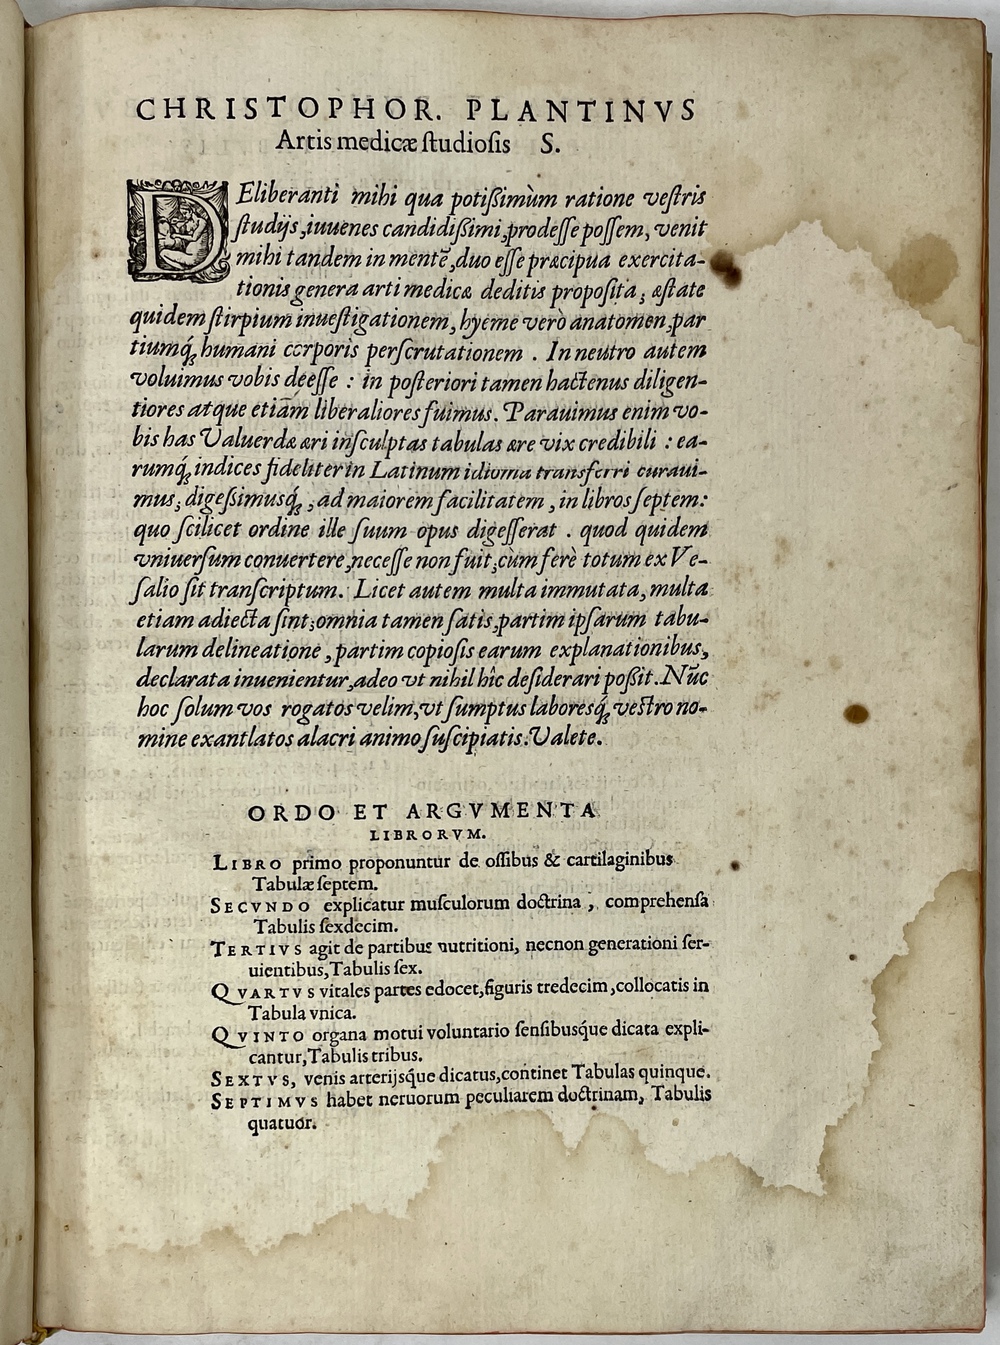 CHRISTOPHOR. PLANTINVS
Artis medicæ ſtudioſis S.
DEliberanti mihi qua potiſſimùm ratione veſtris
ſtudijs, iuuenes candidiſſimi, prodeſſe poſſem, venit
mihi tandem in mentẽ, duo eſſe præcipua exercita-
tionis genera arti medicæ deditis propoſita; æſtate
quidem ſtirpium inueſtigationem, hyeme verò anatomen, par
tiumq́; humani corporis perſcrutationem. In neutro autem
voluimus vobis deeſſe : in poſteriori tamen hactenus diligen-
tiores atque etiam liberaliores fuimus. Parauimus enim vo-
bis has Valuerdæ æri inſculptas tabulas ære vix credibili : ea-
rumq́; indices fideliter in Latinum idioma transferri curaui-
mus; digeſſimusq́;, ad maiorem facilitatem, in libros ſeptem:
quo ſcilicet ordine ille ſuum opus digeſſerat. quod quidem
vniuerſum conuertere, neceſſe non fuit; cùm ferè totum ex Ve-
ſalio ſit tranſcriptum. Licet autem multa immutata, multa
etiam adiecta ſint; omnia tamen ſatis, partim ipſarum tabu-
larum delineatione, partim copioſis earum explanationibus,
declarata inuenientur, adeo vt nihil hîc deſiderari poßit. Nũc
hoc ſolum vos rogatos velim, vt ſumptus laboresq́; veſtro no-
mine exantlatos alacri animo ſuſcipiatis. Valete.
ORDO ET ARGVMENTA
LIBRORVM.
LIBRO primo proponuntur de oſſibus & cartilaginibus
Tabulæ ſeptem.
SECVNDO explicatur muſculorum doctrina, comprehenſa
Tabulis ſexdecim.
TERTIVS agit de partibus nutritioni, necnon generationi ſer-
uientibus, Tabulis ſex.
QVARTVS vitales partes edocet, figuris tredecim, collocatis in
Tabula vnica.
QVINTO organa motui voluntario ſenſibusq́ue dicata expli-
cantur, Tabulis tribus.
SEXTVS, venis arterijsq́ue dicatus, continet Tabulas quinque.
SEPTIMVS habet neruorum peculiarem doctrinam, Tabulis
quatuor.